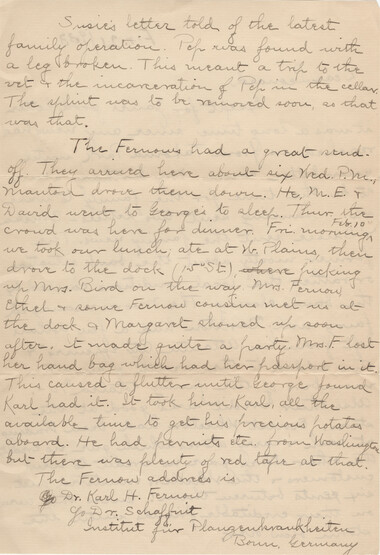 Susie's letter told of the latest
family operation. Pep was found with
a leg broken. This meant a trip to the
vet & the incarceration of Pep in the cellar.
The splint was to be removed soon, so that
was that.
The Fernows had a great send-
off. They arrived here about six Wed. P.M.,
drove them down. He, M.E. &
David went to Georges to sleep. Thur. the
crowd was here for dinner. Fri. morning, Feb. 10
we took our lunch, ate at W. Plains, then
drove to the dock (15th St.), where picking
up Mrs. Bird on the way. Mrs. Fernow,
Ethel & some Fernow cousins met us at
the dock & Margaret showed up soon
after. It made quite a party. Mrs. F lost
her hand bag which had her passport in it.
This caused a flutter until George found
Karl had it. It took him, Karl, all the
available time to get his precious potatos
aboard. He had permits etc. from Washington
but there was plenty of red tape at that.
The Fernow address is
℅ Dr. Karl H. Fernow
℅ Dr. Schaffnit
Institut für Pflanzenkrankheiten
Bonn, Germany